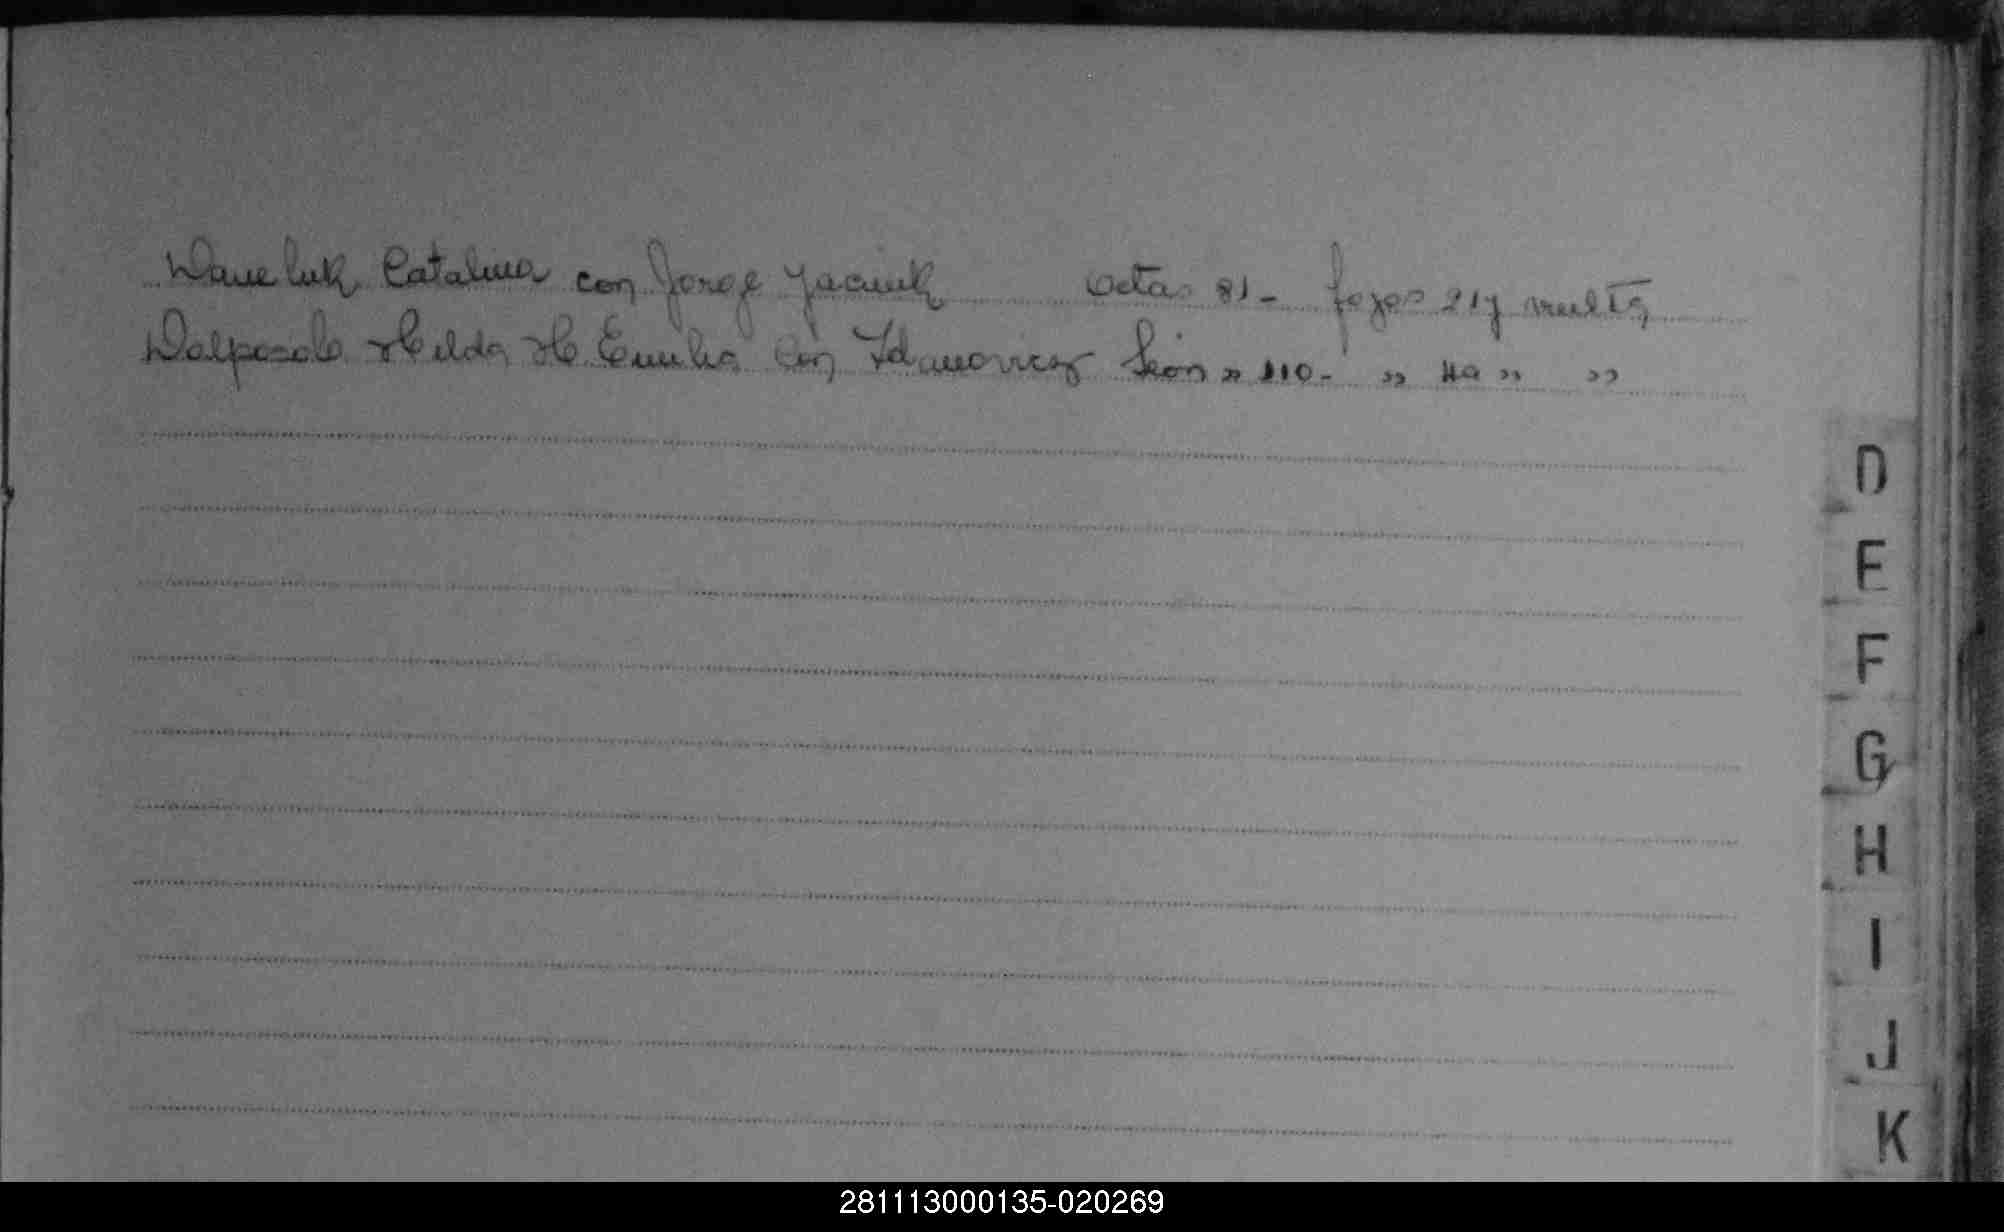 Daneluk Catalina con Jorge Yaciuk Acta 81- fojas 217 vuelta
Dalposolo Hilda H. Emilia con Zdanovicz León » 110- » 49 » »
D
E
F
G
H
I
J
K
281113000135-020269